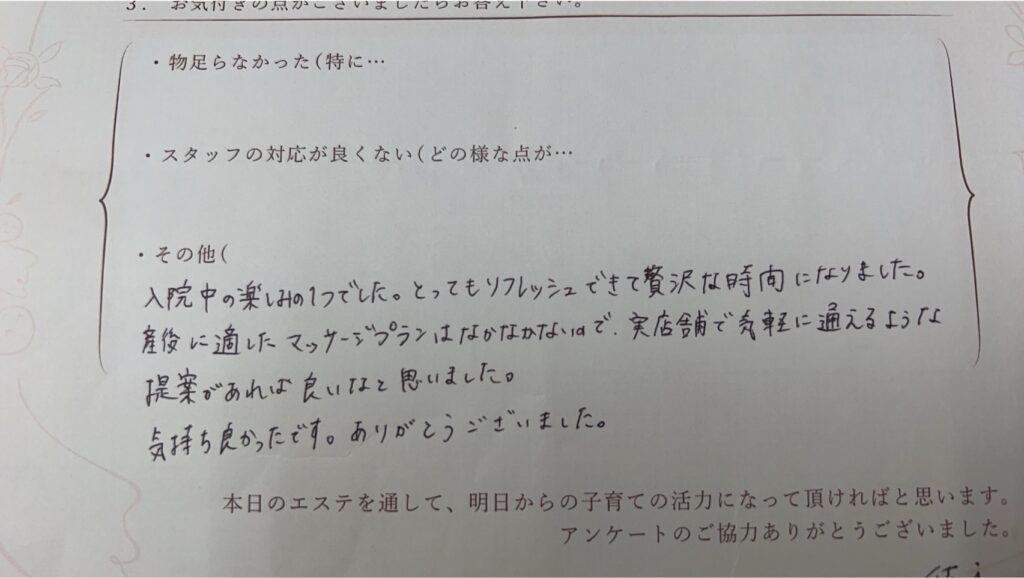 3. お気付きの点がございましたらお答え下さい。
・物足らなかった(特に…
・スタッフの対応が良くない(どの様な点が…
・その他(
入院中の楽しみの1つでした。とってもリフレッシュできて贅沢な時間になりました。
産後に適したマッサージプランはなかなかないので、実店舗で気軽に通えるような
提案があれば良いなと思いました。
気持ち良かったです。ありがとうございました。
本日のエステを通して、明日からの子育ての活力になって頂ければと思います。
アンケートのご協力ありがとうございました。